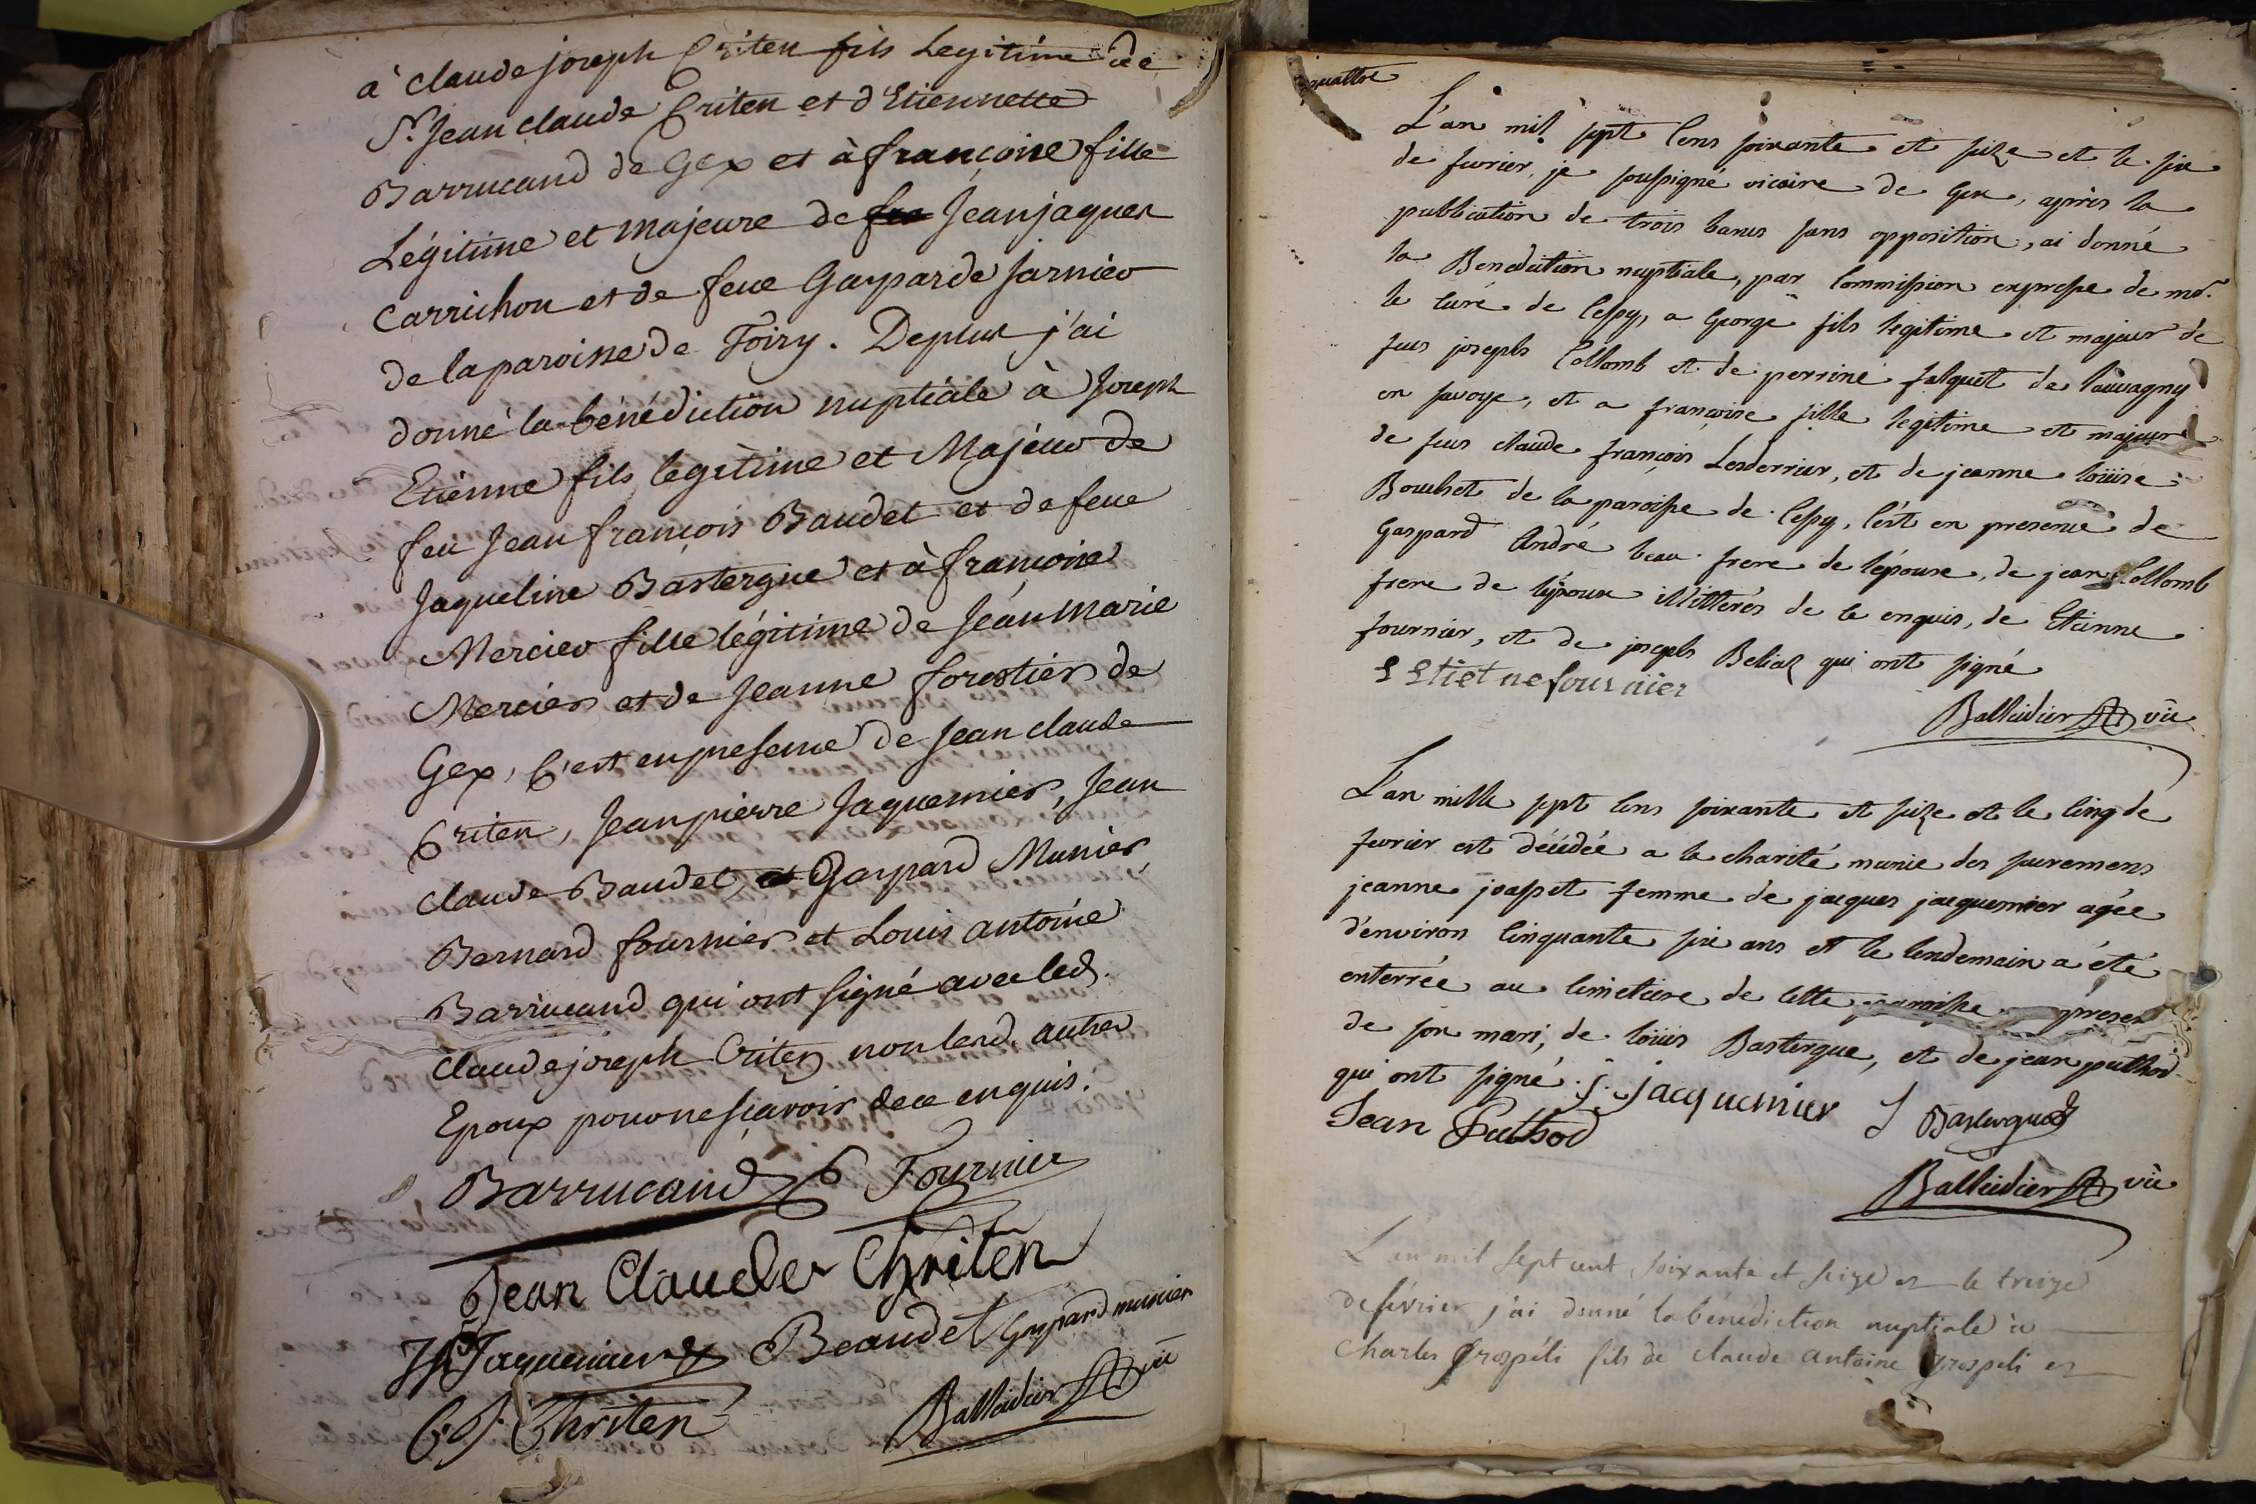 à Claude joseph Criten fils Legitime de
Sr. Jean claude Criten et d'Etiennette
Barrucand de Gex et à françoise fille
Légitime et majeure de feu Jeanjaques
Carrichon et de feue Gasparde Jarnier
de la paroisse de Foiry. Deplus j'ai
donné la bénédiction nuptiale à Joseph
Etiénne fils legitime et Majeur de
feu Jean françois Baudet et de feue
Jaqueline Bastergue et à françoise
Mercier fille légitime de Jéan Marie
Mercier et de Jeanne forestier de
Gex, C'est en presence de Jean claude
Criten, Jeanpierre Jaquemier, Jean
claude Baudet, et Gaspard Munier,
Bernard fournier et Louis antoine
Barrucand qui ont signé avec led.
Claude joseph Criten non lesd. autres
Epoux pour ne sçavoir de ce enquis.
Barrucand Fournier
Jean Claude Chriten
JP Jaquemier Beaudet Gaspard munier
C. J. Chriten Balleidier vic
quattre
L'an mil sept Cens soixante et seize et le six
de fevrier, je soussigné vicaire de Gex, après la
publication de trois bancs sans opposition, ai donné
la Benediction nuptiale, par Commission expresse de mr.
le Curé de Cessy, a George fils legitime et majeur de
feus joseph Collomb et de perrine falquet de
en savoye, et a françoise fille legitime et majeure
de feus claude françois Lesderrier, et de jeanne loüise
Bouchet de la paroisse de Cessy, C'est en presence de
Gaspard André beau-frere de l'épouse, de jean Collomb
frere de l'époux illitterés de ce enquis, de Etienne
fournier, et de joseph Beliaz qui ont signé
Etietne fournier
Balleidier vic
L'an mille sept Cens soixante et seize et le Cinq de
fevrier est décédée a la charité munie des sacremens
jeanne josset femme de jacques jacquemier agée
d'environ Cinquante six ans et le lendemain a été
enterrée au Cimetiere de Cette paroisse presen
de son mari, de loüis Bastergue, et de jean puthod
qui ont signé. j. jacquemier L Bastergue
Jean Puthod
Balleidier vic
L'an mil sept cent soixante et seize et le treize
de février j'ai donné la bénédiction nuptiale à
Charles Grospéli fils de claude antoine grospeli et